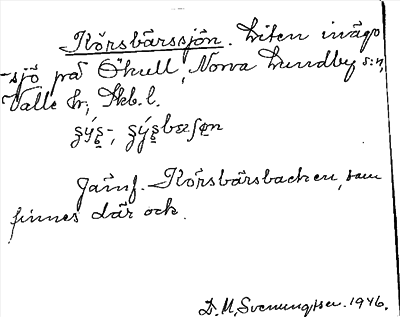 Körsbärssjön. Liten inägo
-sjö på Ökull, Norra Lundby s:n,
Valle hr, Skb. l.
Jämf. Körsbärsbacken, som
finnes där ock.
D. M. Svenungsson. 1946.